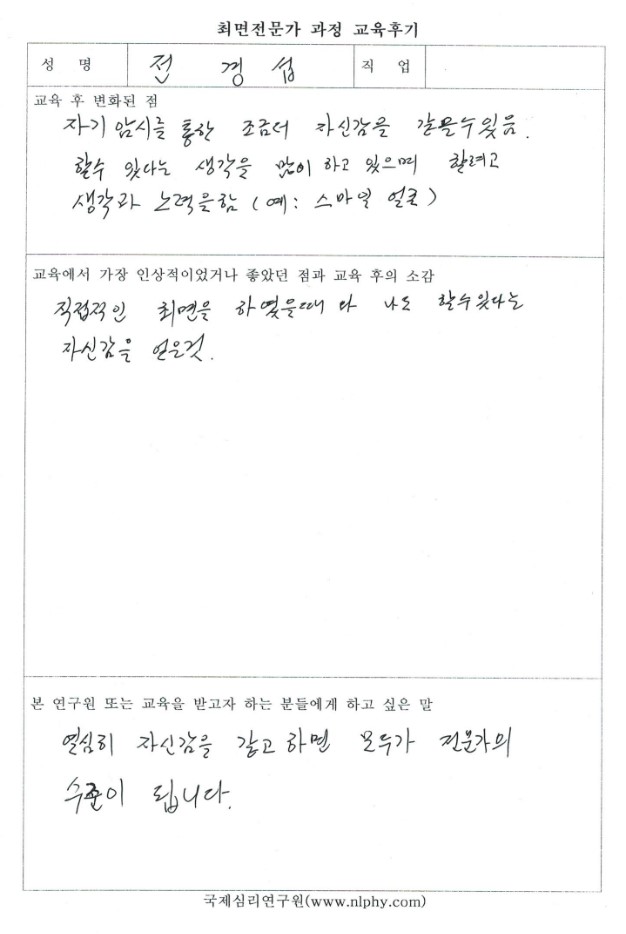 최면전문가 과정 교육후기
성 명 전 경 섭 직 업
교육 후 변화된 점
자기 암시를 통한 조금더 자신감을 갖을수있음.
할수 있다는 생각을 많이 하고 있으며 할려고
생각과 노력을함 (예: 스마일 얼굴)
교육에서 가장 인상적이었거나 좋았던 점과 교육 후의 소감
직접적인 최면을 하였을때 다 나도 할수있다는
자신감을 얻은것.
본 연구원 또는 교육을 받고자 하는 분들에게 하고 싶은 말
열심히 자신감을 갖고 하면 모두가 전문가의
수준이 됩니다.
국제심리연구원(www.nlphy.com)